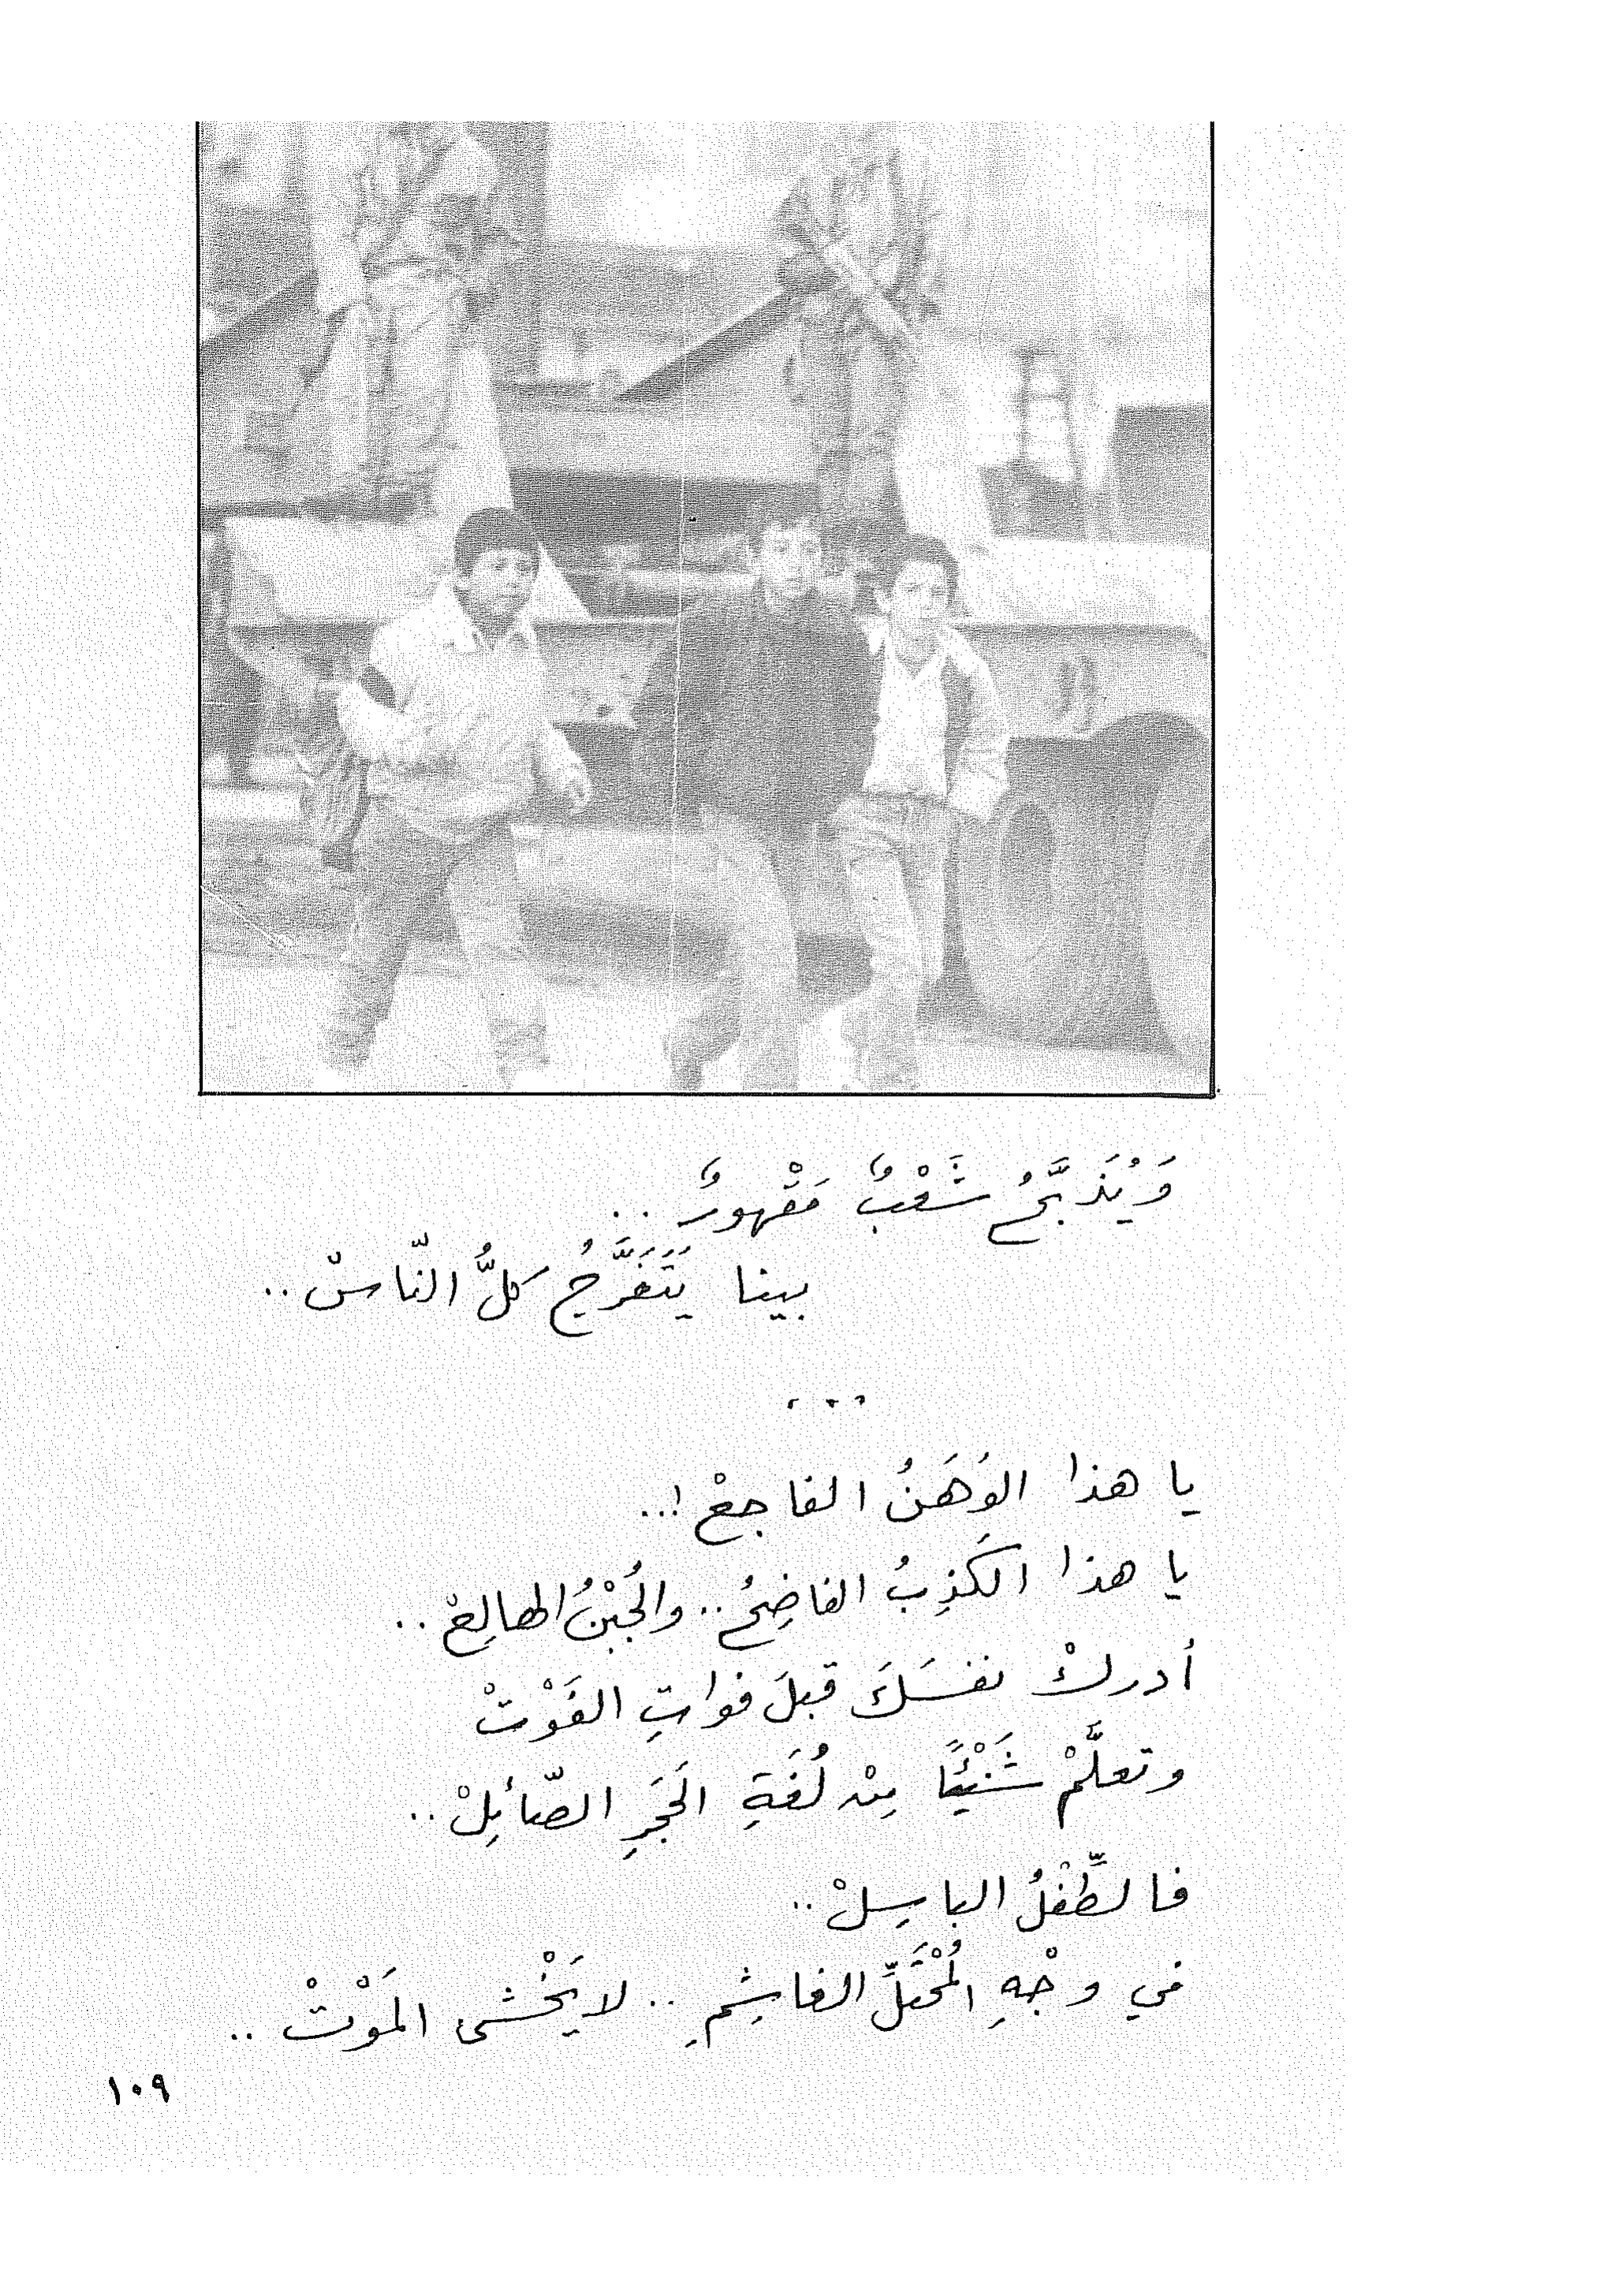 وَيُذَبَّحُ شَعْبٌ مَقْهورٌ ..
بينا يَتَفَرَّجُ كلُّ النّاسْ ..
...
يا هذا الوَهَنُ الفاجعْ !..
يا هذا الكَذِبُ الفاضِحُ .. والجُبْنُ الهالِعْ ..
أدركْ نفسَكَ قبلَ فواتِ الفَوْتْ
وتعلَّمْ شَيْئًا مِنْ لُغَةِ الحَجَرِ الصّائِلْ ..
فالطِّفْلُ الباسِلْ ..
في وجْهِ المُحْتَلِّ الغاشِمِ .. لا يَخْشى المَوْتْ ..
١٠٩